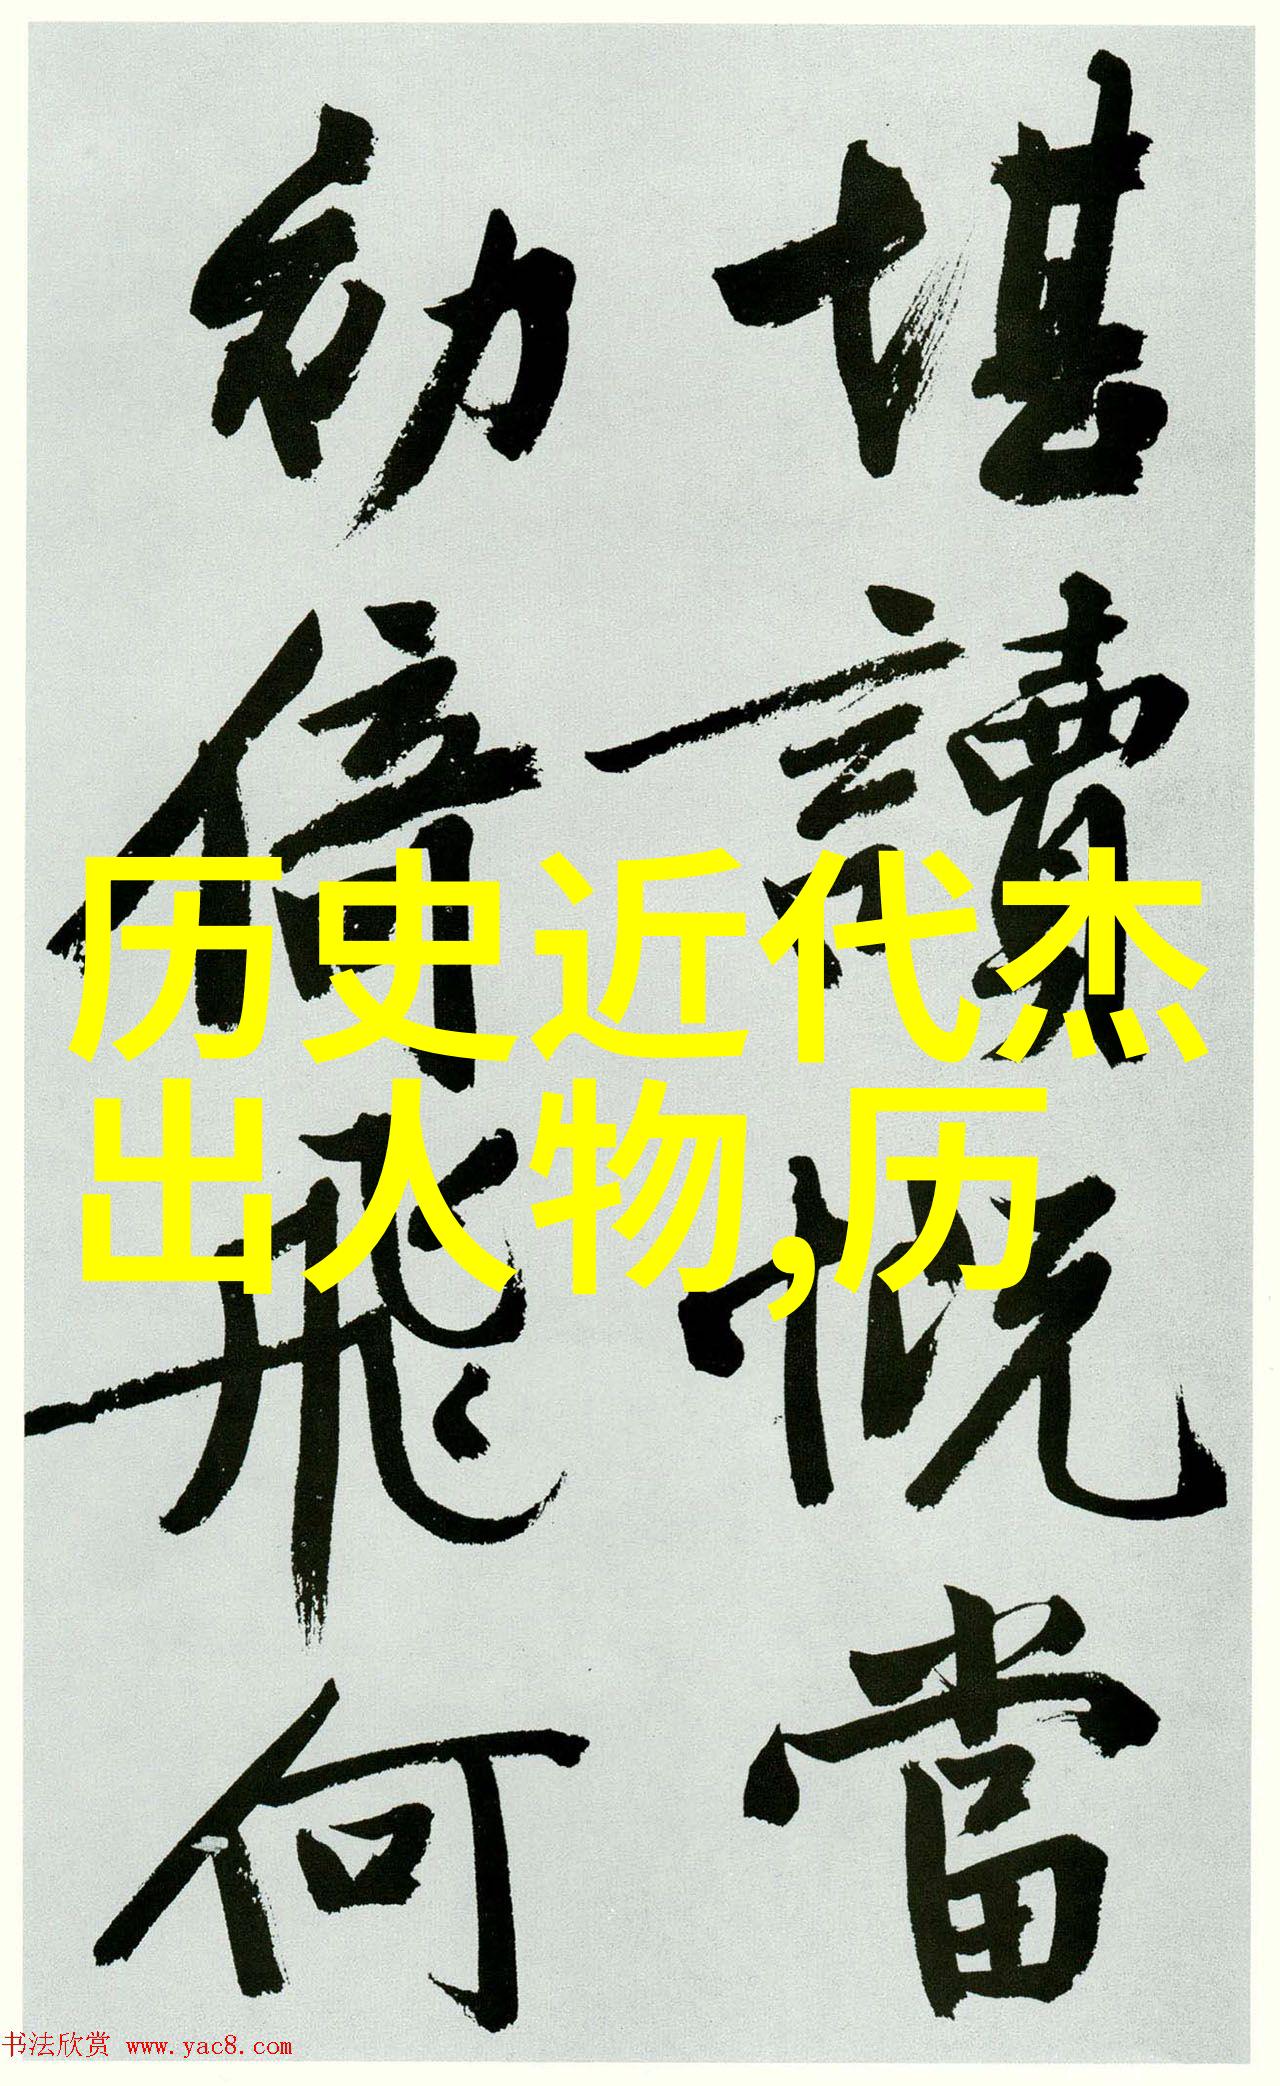 堪讀慨當
幼倍飛何
历史近代杰
出人物,历
书法欣赏 www.yac8.com